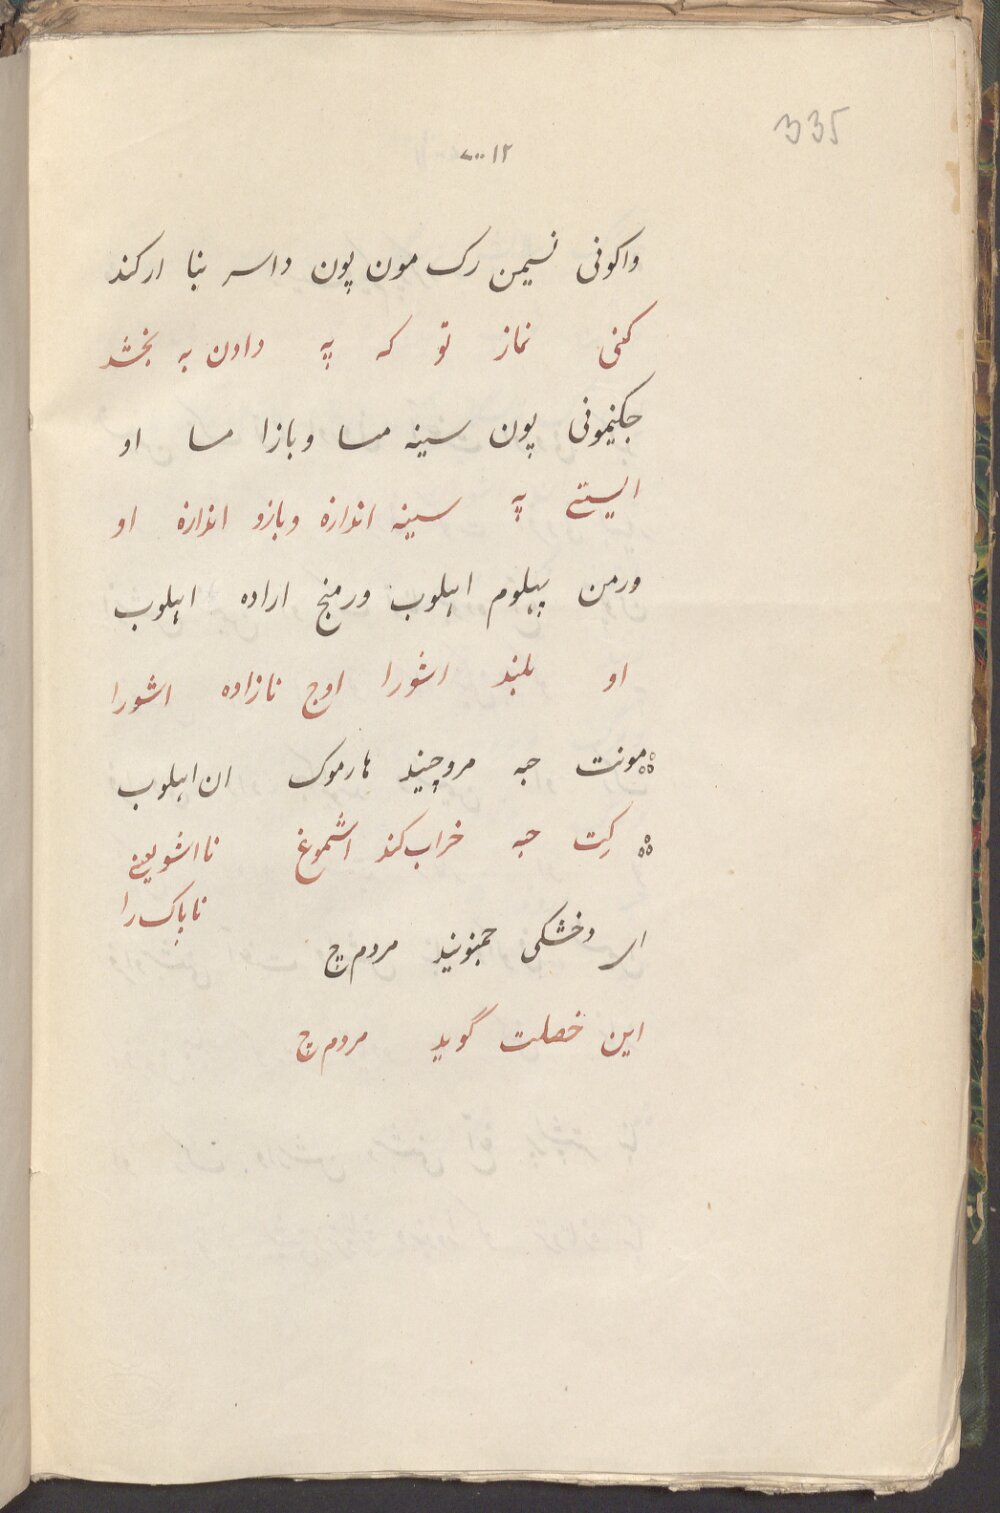 335
۱۲
واکونی نسیمن رک مون پون داسر بنا ارکند
کنی نماز تو که په دادن به بخشد
جکنیمونی پون سینه مسا وبازا مسا او
ایستی په سینه اندازه وبازو اندازه او
ورمن پیلوم اہلوب ورمنج اراده اہلوب
او بلند اشورا اوج نازاده اشورا
مونت جه مروچیند هارموک ان اہلوب
کِت جه خراب کند اشموغ نا اشو یعنے
ناپاک را
ای دخشکی جمنونید مردم چ
این خصلت گوید مردم چ